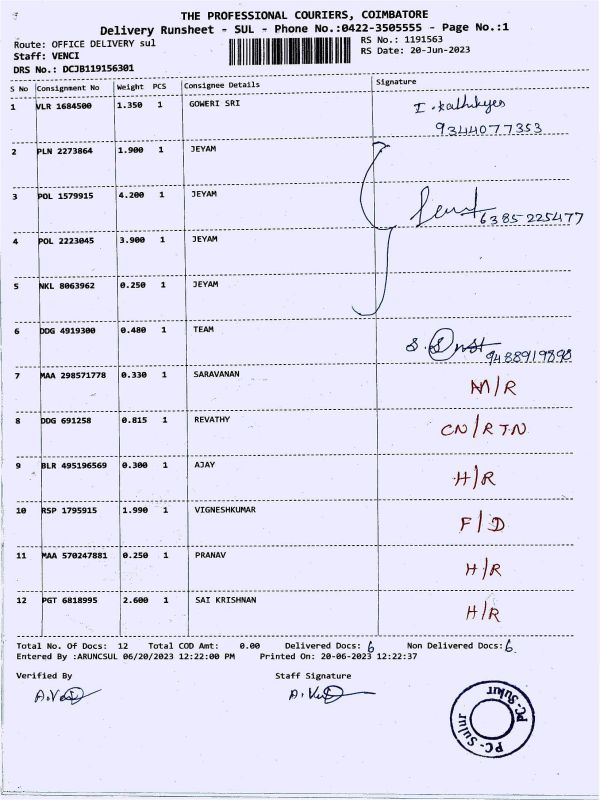 THE PROFESSIONAL COURIERS, COIMBATORE
Delivery Runsheet - SUL - Phone No.:0422-3505555 - Page No.:1
Route: OFFICE DELIVERY sul RS No.: 1191563
Staff: VENCI RS Date: 20-Jun-2023
DRS No.: DCJB119156301
S No Consignment No Weight PCS Consignee Details Signature
1 VLR 1684500 1.350 1 GOWERI SRI
9344077353
2 PLN 2273864 1.900 1 JEYAM
3 POL 1579915 4.200 1 JEYAM
6385225477
4 POL 2223045 3.900 1 JEYAM
5 NKL 8063962 0.250 1 JEYAM
6 DDG 4919300 0.480 1 TEAM
9488919898
7 MAA 298571778 0.330 1 SARAVANAN M/R
8 DDG 691258 0.815 1 REVATHY CN/RTN
9 BLR 495196569 0.300 1 AJAY H/R
10 RSP 1795915 1.990 1 VIGNESHKUMAR F/D
11 MAA 570247881 0.250 1 PRANAV H/R
12 PGT 6818995 2.600 1 SAI KRISHNAN H/R
Total No. Of Docs: 12 Total COD Amt: 0.00 Delivered Docs: 6 Non Delivered Docs: 6
Entered By :ARUNCSUL 06/20/2023 12:22:00 PM Printed On: 20-06-2023 12:22:37
Verified By Staff Signature
PC-Sulur
PC-Sulur